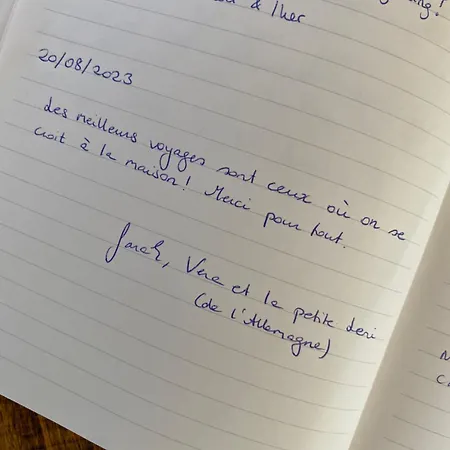 & Iker
20/08/2023
des meilleurs voyages sont ceux où on se
croit à la maison! Merci pour tout.
Sarah, Vera et la petite
(de l'Allemagne)